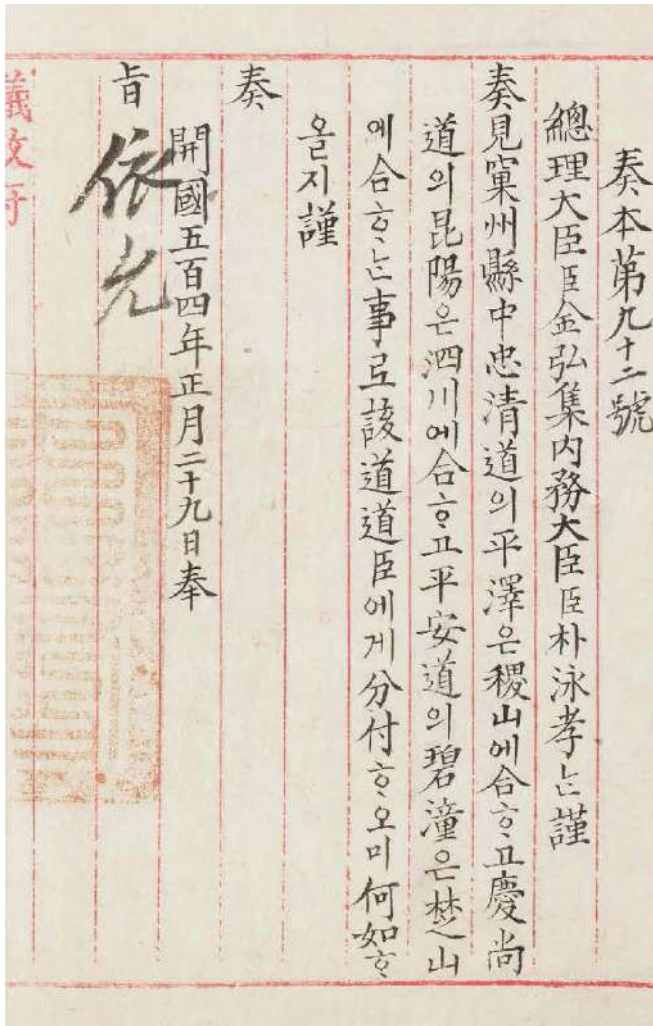 奏本苐九十二號
總理大臣臣金弘集内務大臣臣朴泳孝는謹
奏見窠州縣中忠清道의平澤은稷山에合ᄒᆞ고慶尚
道의昆陽은泗川에合ᄒᆞ고平安道의碧潼은椘山
에合ᄒᆞ는事로該道道臣에게分付ᄒᆞ오미何如ᄒᆞ
올지謹
奏
開國五百四年正月二十九日奉
旨依允
議政府